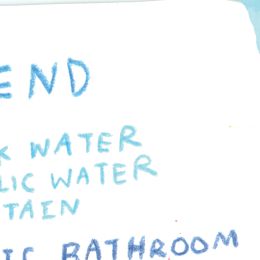 END
K WATER
LIC WATER
TAIN
IC BATHROOM